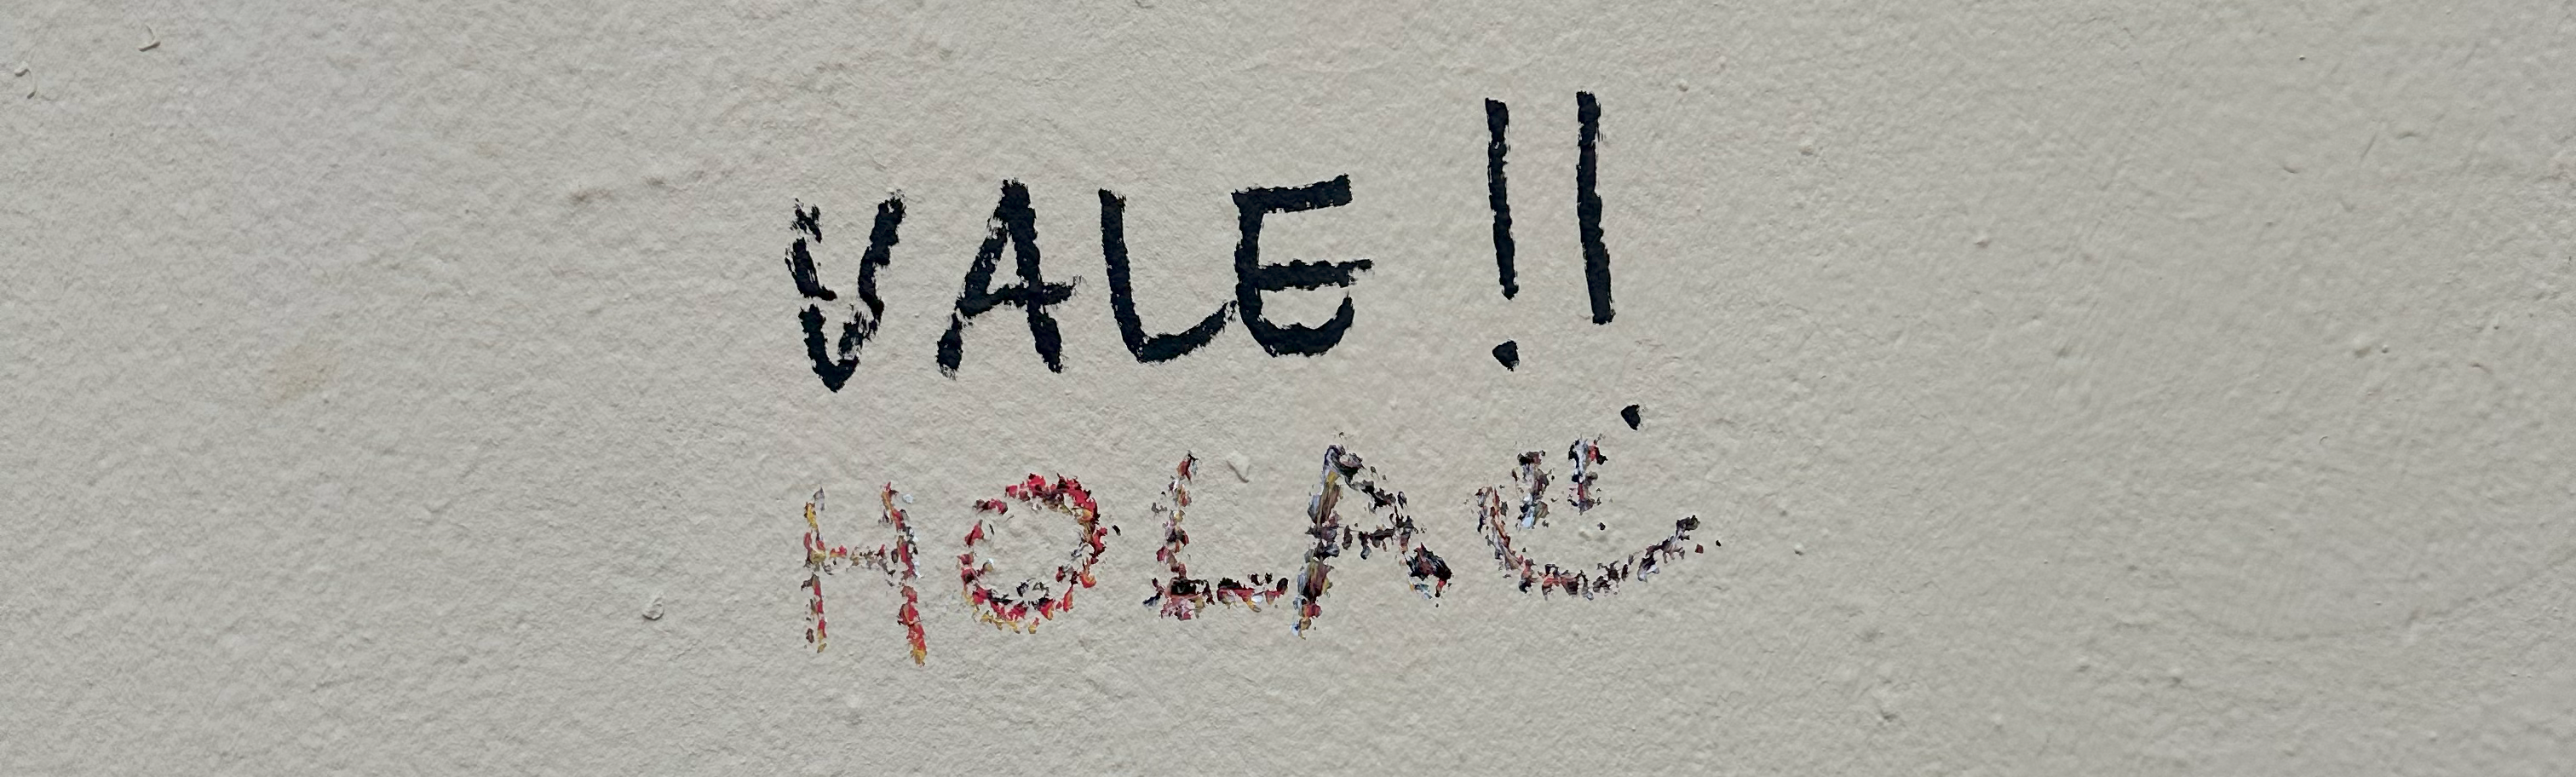 VALE!!
HOLA